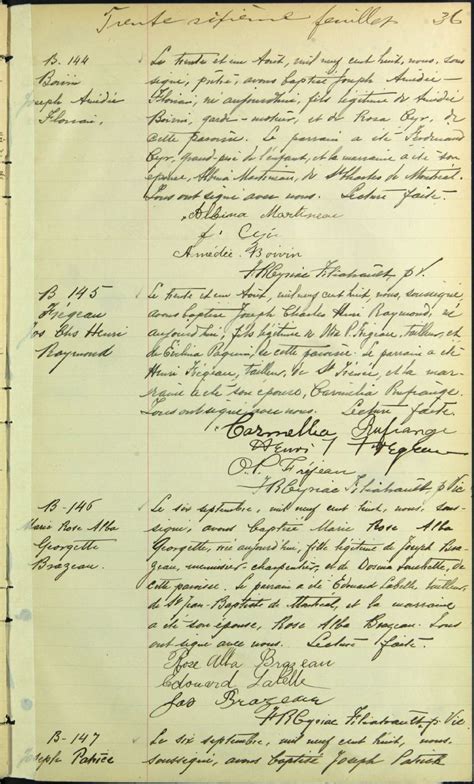 Trente sixième feuillet 36
B-144
Boivin
Joseph Amédée
Florian,
Le trente et un Août, mil neuf cent huit, nous, sous-
signé, prêtre, avons baptisé Joseph Amédée
Florian, né aujourd'hui, fils légitime de Amédée
Boivin, garde-moteur, et de Rosa Cyr, de
cette paroisse. Le parrain a été Ferdinand
Cyr, grand-père de l'enfant, et la marraine a été son
épouse, Albina Martineau, de St Charles de Montréal.
Tous ont signé avec nous. Lecture faite.
Albina Martineau
f. Cyr
Amédée Boivin
B-145
Frégeau
Jos Chs Henri
Raymond
Le trente et un Août, mil neuf cent huit, nous, soussigné,
avons baptisé Joseph Charles Henri Raymond, né
aujourd'hui, fils légitime de P. Frégeau, tailleur, et
de Paquin, de cette paroisse. Le parrain a été
Henri Frégeau, tailleur, de St Irénée, et la mar-
raine a été son épouse, Carmélia Rufrange.
Tous ont signé avec nous. Lecture faite.
Carmellia Rufrange
Henri Frégeau
Frégeau
B-146
Marie Rose Alba
Georgette
Brazeau
Le six septembre, mil neuf cent huit, nous, sous-
signé, avons baptisé Marie Rose Alba
Georgette, née aujourd'hui, fille légitime de Joseph Bra-
zeau, menuisier-charpentier, et de de
cette paroisse. Le parrain a été Edouard Labelle, tailleur,
de St Jean-Baptiste de Montréal, et la marraine
a été son épouse, Rose Alba Brazeau. Tous
ont signé avec nous. Lecture faite.
Rose Alba Brazeau
Edouard Labelle
Jos Brazeau
B-147
Joseph Patrice
Le six septembre, mil neuf cent huit, nous,
soussigné, avons baptisé Joseph Patrick